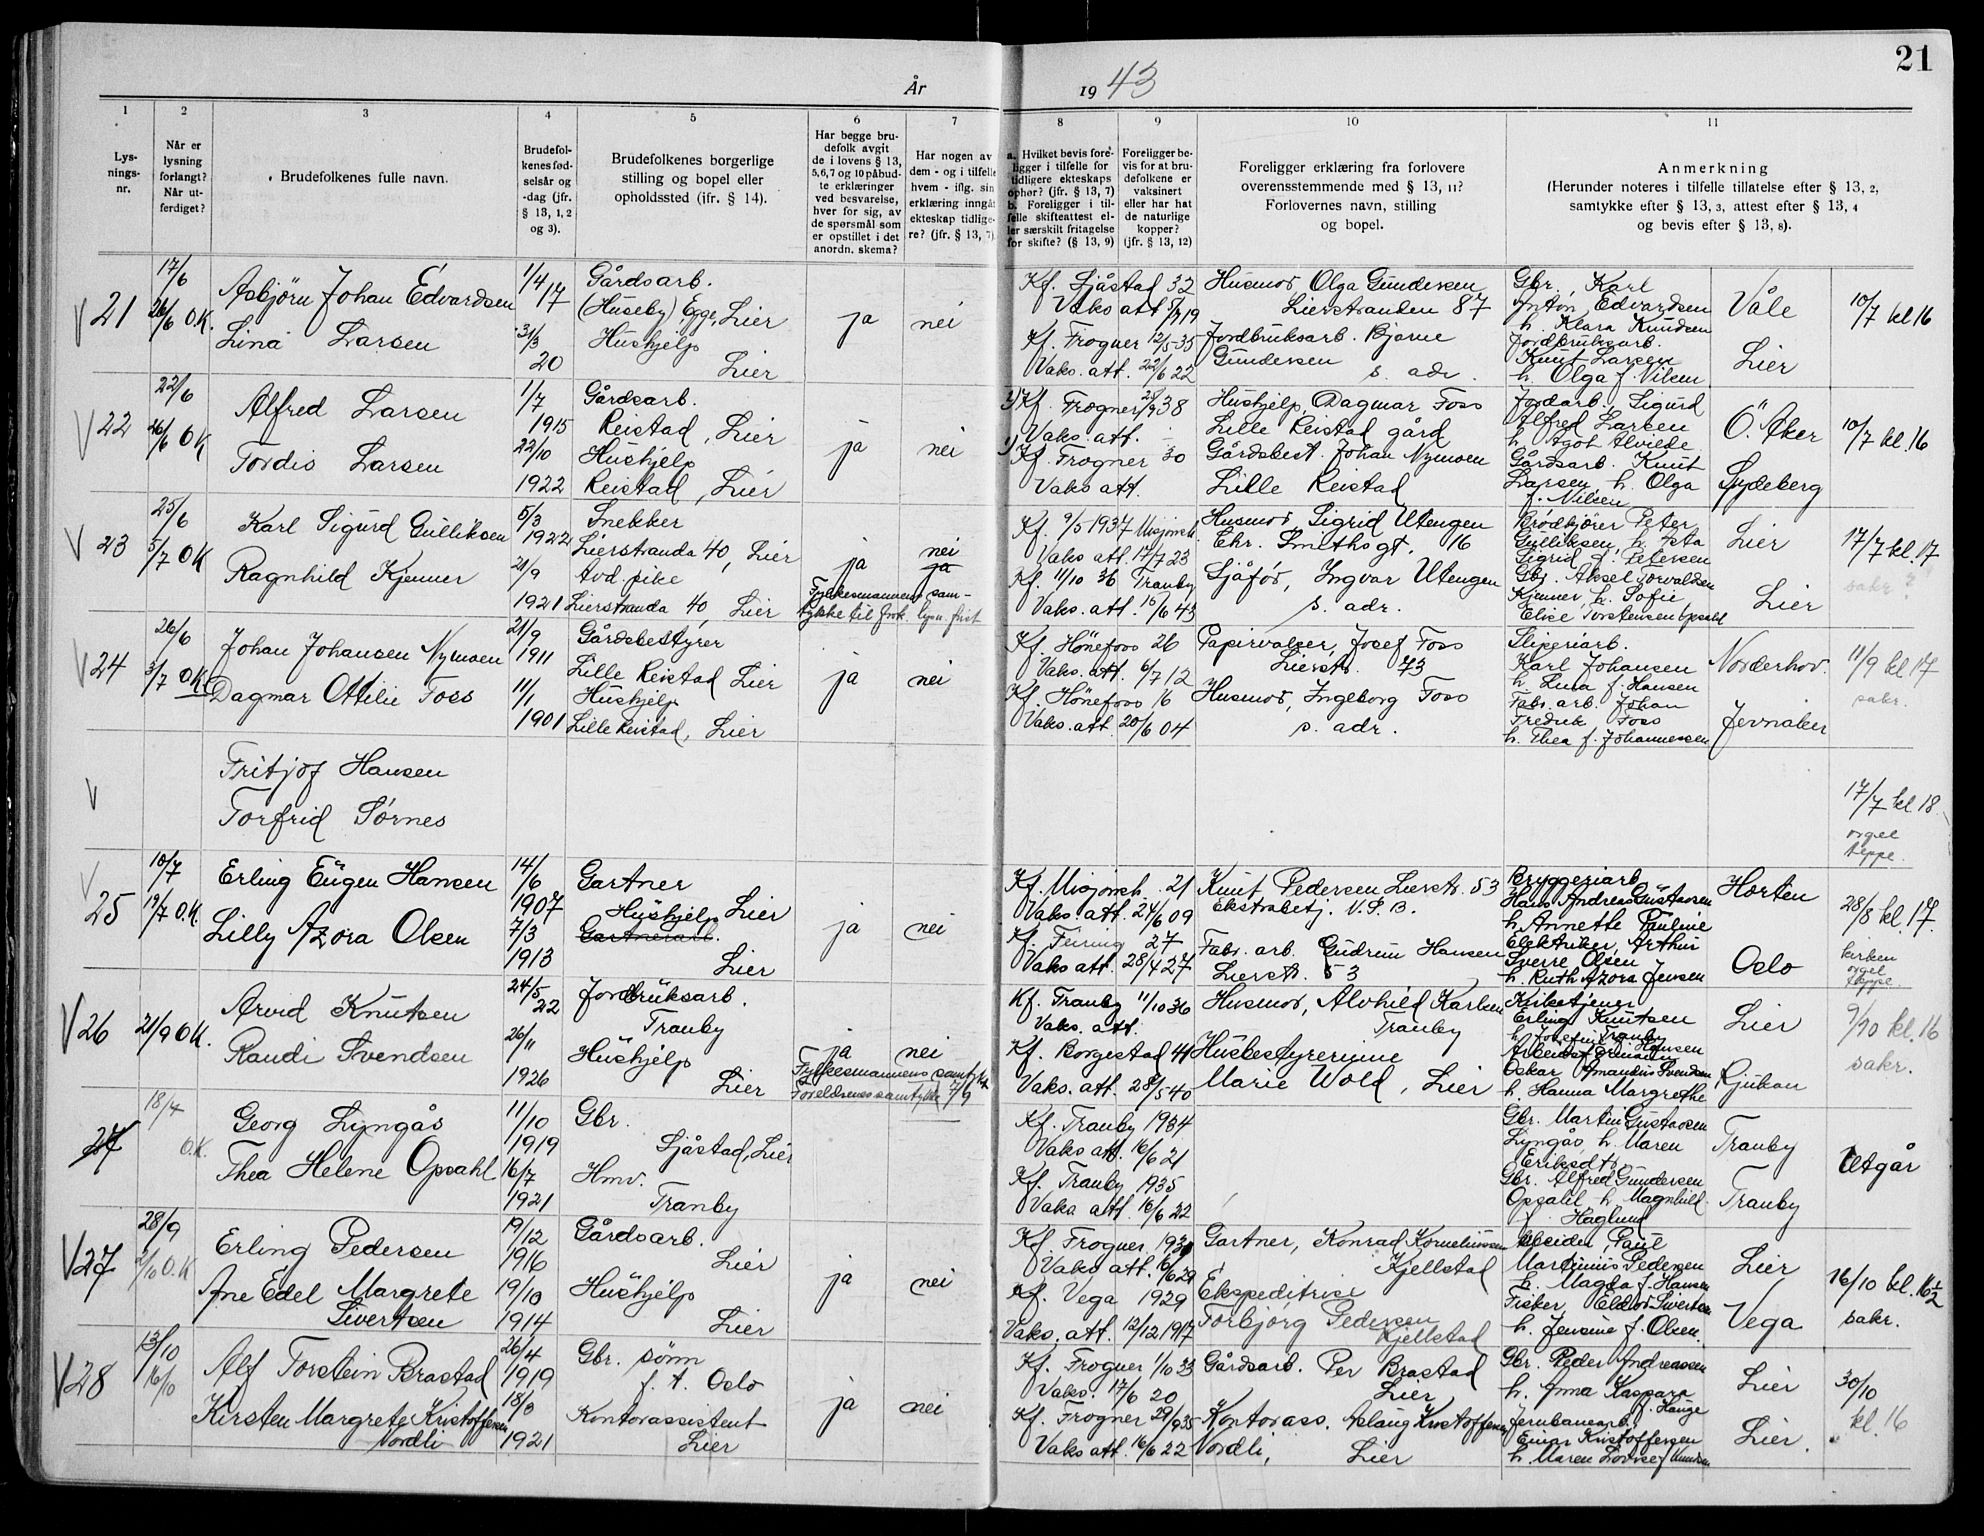 21
År
19 43
1
2
3
4
5
6
7
8
9
10
11
Lys-
nings-
nr.
Når er
lysning
forlangt?
Når ut-
ferdiget?
Brudefolkenes fulle navn.
Brudefol-
kenes fød-
selsår og
-dag (jfr.
§ 13, 1, 2
og 3).
Brudefolkenes borgerlige
stilling og bopel eller
opholdssted (jfr. § 14).
Har begge bru-
defolk avgit
de i lovens § 13,
5,6,7 og 10 påbud-
te erklæringer
ved besvarelse,
hver for sig, av
de spørsmål som
er opstillet i det
anordn. skema?
Har nogen av
dem - og i tilfelle
hvem - iflg. sin
erklæring inngåt
ekteskap tidlige-
re? (jfr. § 13, 7)
a. Hvilket bevis fore-
ligger i tilfelle for
tidligere ekteskaps
ophør? (jfr. § 13, 7)
b. Foreligger i til-
felle skifteattest el-
ler særskilt fritagelse
for skifte? (§ 13, 9)
Foreligger be-
vis for at bru-
defolkene er
vaksinert
eller har hat
de naturlige
kopper?
(jfr. § 13, 12)
Foreligger erklæring fra forlovere
overensstemmende med § 13, 11?
Forlovernes navn, stilling
og bopel.
Anmerkning
(Herunder noteres i tilfelle tillatelse efter § 13, 2,
samtykke efter § 13, 3, attest efter § 13, 4
og bevis efter § 13, 8).
V 21
17/6
26/6 O.K.
Asbjörn Johan Edvardsen
Lina Larsen
1/4
17
31/3
20
Gårdsarb.
(Huseby) Egge, Lier
Hushjelp
Lier
ja
nei
Kf. Sjåstad 32
Vaks att 19
Kf. Frogner 12/5-35
Vaks. att. 22/6 22
Husmor Olga Gundersen
Lierstranden 87
Jordbruksarb. Bjarne
Gundersen
s. adr.
Gbr. Karl
Anton Edvardsen
h. Klara Knudsen
Jordbruksarb.
Knut Larsen
h. Olga f. Nilsen
Våle
Lier
10/7 kl 16
V 22
22/6
26/6 OK
Alfred Larsen
Tordis Larsen
1/7
1915
22/10
1922
Gårdsarb.
Reistad, Lier
Hushjelp
Reistad, Lier
ja
nei
Kf. Frogner 38
Vaks. att.
Kf. Frogner 30
Vaks att.
Hushjelp Dagmar Foss
Lille Reistad gård
Gårdsbest. Johan Nymoen
Lille Reistad
Jordarb. Sigurd
Alfred Larsen
h. Agot Alvilde
Gårdsarb. Knut
Larsen h. Olga
f. Nilsen
Ö. Aker
10/7 kl. 16
V 23
25/6
5/7 OK
Karl Sigurd Gulliksen
Ragnhild Kjenner
5/3
1922
21/9
1921
Snekker
Lierstranda 40, Lier
Avd. pike
Lierstranda 40, Lier
ja
nei
ja
Fylkesmannens sam-
tykke til fork. lysn. frist
Kf. 9/5 1937 Misjonsk.
Vaks att. 17/7 23
Kf. 11/10 36 Tranby
Vaks. att. 15/6 43
Husmor Sigrid Utengen
Chr. Smithsgt. 16
Sjåför, Ingvar Utengen
s. adr.
Brödkjörer Peter
Gulliksen, h. Asta
Sigrid f. Petersen
Gbr. Aksel Torvaldsen
Kjenner, h. Sofie
Elise Torstensen Opsahl
Lier
Lier
17/7 kl. 17
sakr. ?
V 24
26/6
3/7 OK
Johan Johansen Nymoen
Dagmar Ottilie Foss
21/9
1911
11/1
1901
Gårdsbestyrer
Lille Reistad Lier
Hushjelp
Lille Reistad, Lier
ja
nei
Kf. Hönefoss 26
Vaks. att. 6/7 12
Kf. Hönefoss 16
Vaks. att. 20/6 04
Papirvalser, Josef Foss
Lierstr. 73
Husmor, Ingeborg Foss
s. adr.
Sliperiarb.
Karl Johansen
h. Lina f. Hansen
Fabr. arb. Johan
Fredrik Foss
h. Thea f. Johannessen
Norderhov.
Jevnaker
11/9 kl 17
sakr.
V
Fritjof Hansen
Torfrid Sörnes
17/7 kl. 18
orgel
teppe.
V
25
10/7
19/7 O.K.
Erling Eugen Hansen
Lilly Azora Olsen
14/6
1907
7/3
1913
Gartner
Lier
Hushjelp
Gartnerarb.
Lier
ja
nei
Kf. Misjonsk. 21
Vaks. att. 24/6 09
Kf. Feiring 27
Vaks att. 28/4 27
Knut Pedersen Lierstr. 53
Ekstrabetj. N.S.B.
Fabr. arb. Gudrun Hansen
Lierstr. 53
Bryggeriarb
Hans Andreas Gustavsen
h. Annette Pauline
Elektriker, Arthur
Sverre Olsen
h. Ruth Azora Jensen
Horten
Oslo
28/8 kl. 17.
kirken
orgel
teppe
V 26
21/9 O.K.
Arvid Knutsen
Randi Svendsen
24/5
22
26/11
1926
Jordbruksarb.
Tranby
Hushjelp
Lier
ja
nei
Fylkesmannens samtykke
Foreldrenes samtykke 7/9
Kf. Tranby 11/10 36
Vaks. att.
Kf. Borgestad 41
Vaks. att. 28/5 40
Husmor, Alvhild Karlsen
Tranby
Husbestyrerinne
Marie Wold, Lier
Kirketjener
Erling Knutsen
h. Josefine Hansen
Tranby
Arbeidsformann
Oskar Amandus Svendsen
h. Hanna Margrethe
Lier
Rjukan
9/10 kl. 16
sakr.
27
18/4
O.K.
Georg Lyngås
Thea Helene Opsahl
11/10
1919
16/7
1921
Gbr.
Sjåstad, Lier
Hmv.
Tranby
Kf. Tranby 1934
Vaks att. 16/6 21
Kf. Tranby 1935
Vaks att. 16/6 22
Gbr. Martin Gustavsen
Lyngås h. Maren
Eriksdtr
Gbr. Alfred Gundersen
Opsahl h. Magnhild
f. Haglund
Tranby
Tranby
Utgår
V 27
28/9
2/10 O.K
Erling Pedersen
Ane Edel Margrete
Sivertsen
19/12
1916
19/10
1914
Gårdsarb.
Lier
Hushjelp
Lier
ja
nei
Kf. Frogner 1931
Vaks att. 16/6 29
Kf. Vega 1929
Vaks. att. 12/12 1917
Gartner, Konrad Korneliussen
Kjellstad
Ekspeditrise
Torbjörg Pedersen
Kjellstad
Arbeider, Paul
Martinius Pedersen
h. Magda f. Hansen
Fisker, Eldor Sivertsen
h. Jensine f. Olsen.
Lier
Vega
16/10 kl. 16 1/2
sakr.
V 28
13/10
16/10
Alf Torstein Brastad
Kirsten Margrete Kristoffersen
Nordli
26/4
1919
18/8
1921
Gbr. sönn
f. t. Oslo
Kontorassistent
Lier
ja
nei
Kf. Frogner 1/10 33
Vaks. 17/6 20
Kf. Frogner 29/9 35
Vaks att. 16/6 22
Gårdsarb. Per Brastad
Lier
Kontorass. Aslaug Kristoffersen
Nordli, Lier
Gbr. Peder Andreassen
h. Anna Kaspara
f. Hauge
Jernbanearb.
Einar Kristoffersen
h. Maren Lovise f. Knudsen
Lier
Lier.
30/10
kl. 16